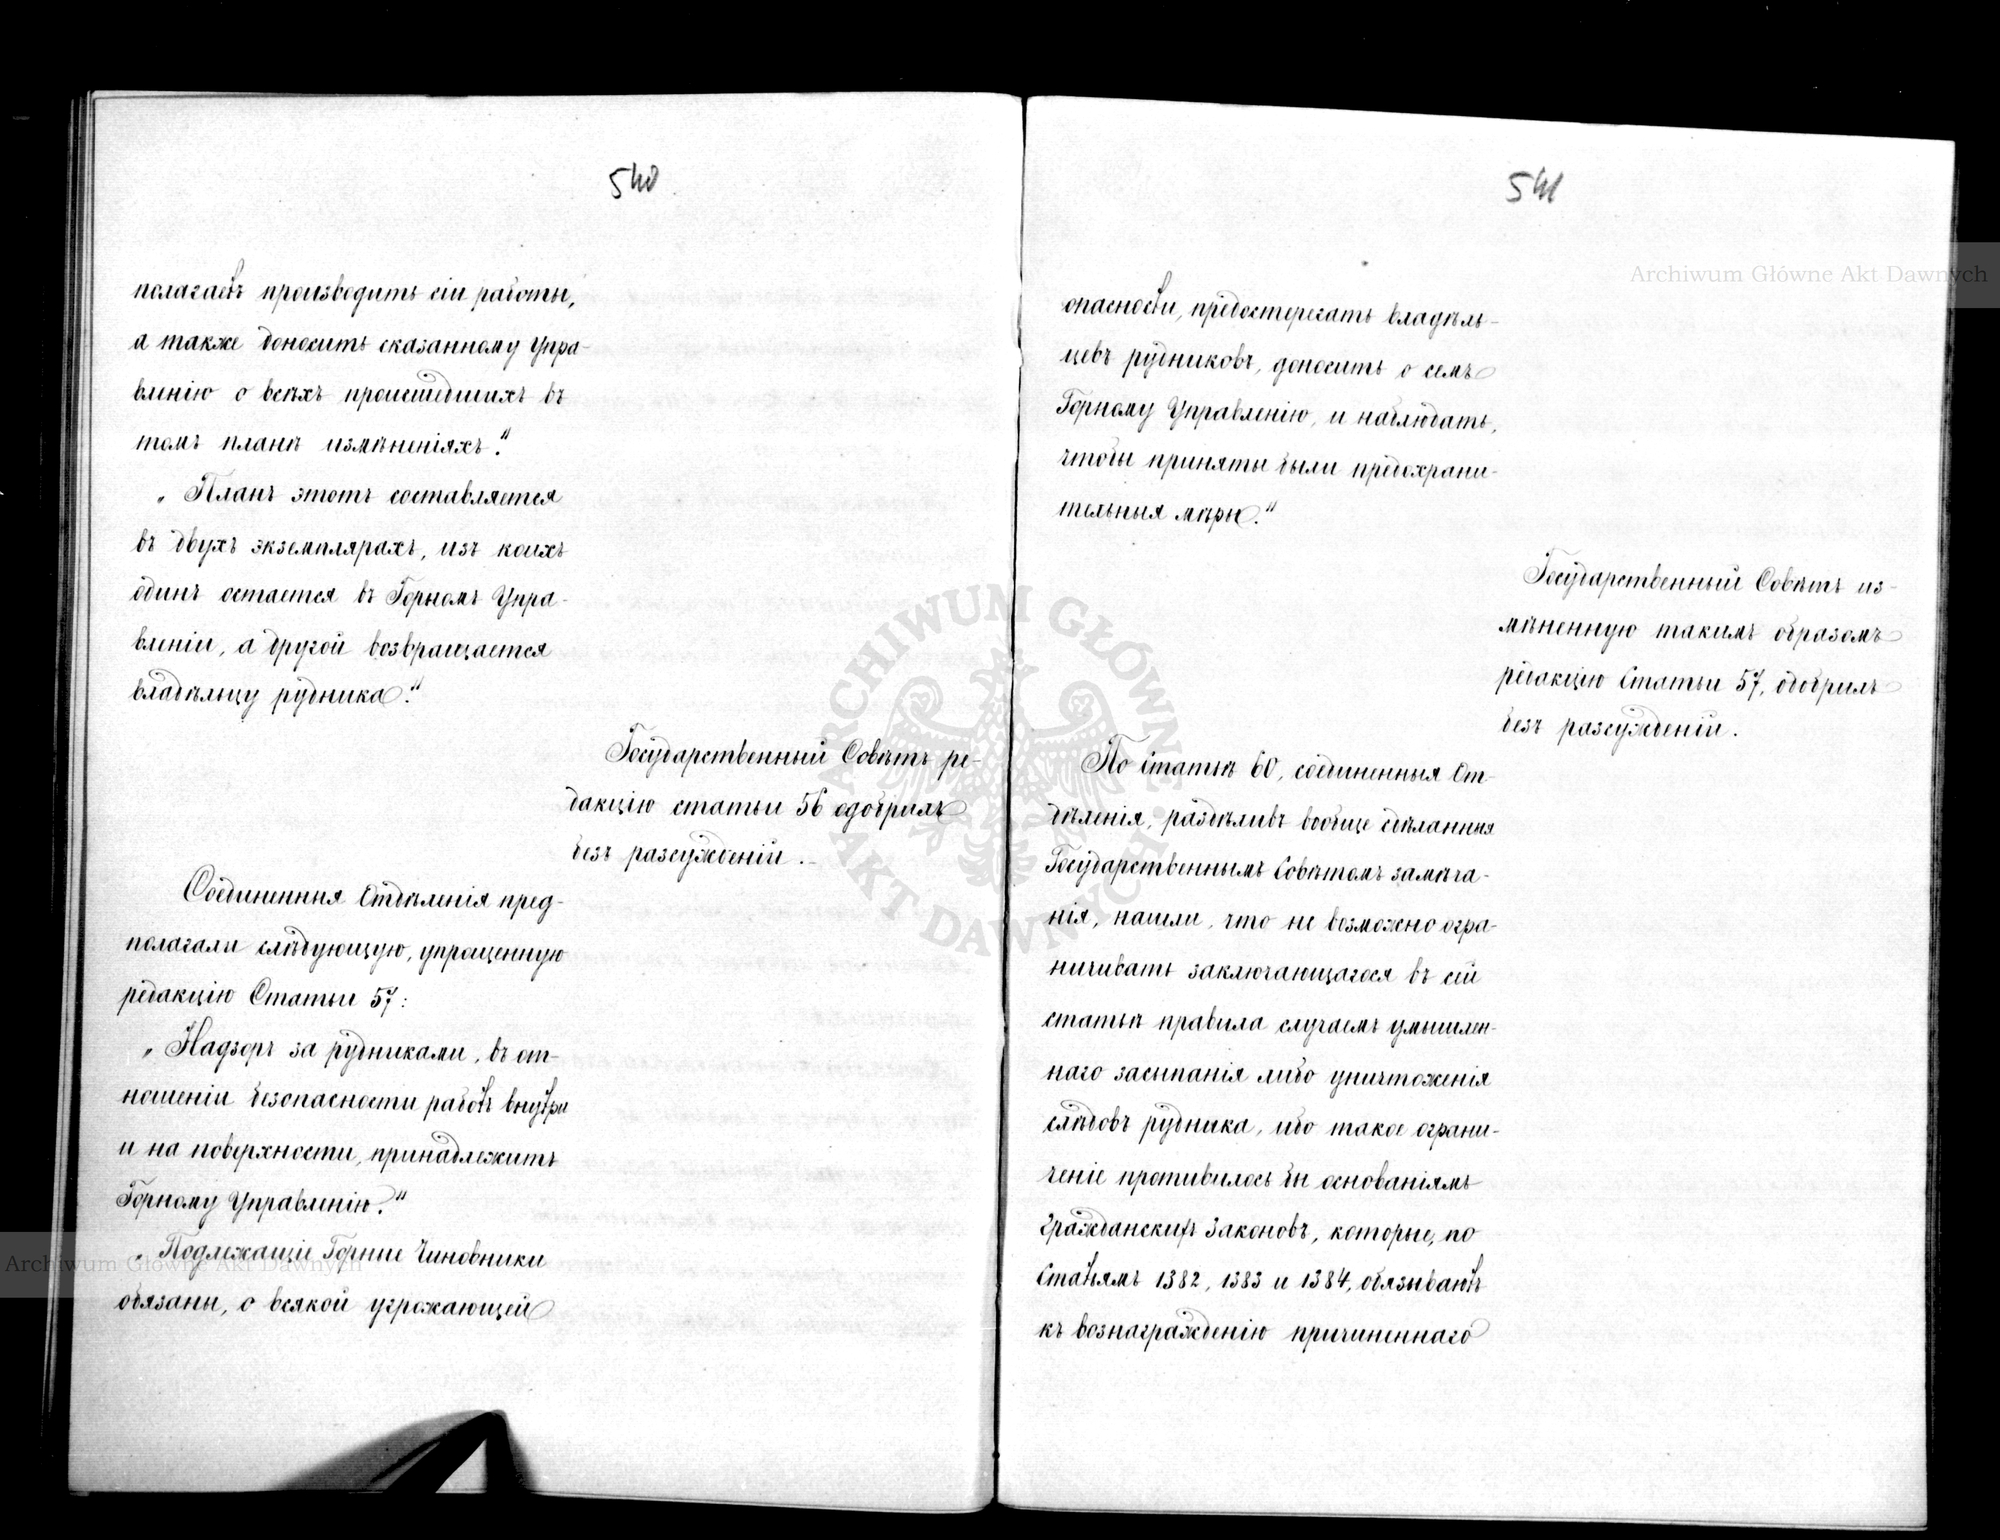 540
полагаетъ производить сіи работы,
а также доносить сказанному Упра-
вленію о всѣхъ происшедшихъ въ
томъ планѣ измѣненіяхъ."
„Планъ этотъ составляется
въ двухъ экземплярахъ, изъ коихъ
одинъ остается въ Горномъ Упра-
вленіи, а другой возвращается
владѣльцу рудника."
Государственный Совѣтъ ре-
дакцію статьи 56 одобрилъ
безъ разсужденій.
Соединенныя Отдѣленія пред-
полагали слѣдующую, упрощенную
редакцію Статьи 57:
„Надзоръ за рудниками, въ от-
ношеніи безопасности работъ внутри
и на поверхности, принадлежитъ
Горному Управленію."
„Подлежащіе Горные Чиновники
обязаны, о всякой угрожающей
541
опасности, предостерегать владѣль-
цевъ рудниковъ, доносить о семъ
Горному Управленію, и наблюдать,
чтобы приняты были предохрани-
тельныя мѣры."
Государственный Совѣтъ из-
мѣненную такимъ образомъ
редакцію Статьи 57, одобрилъ
безъ разсужденій.
По Статьѣ 60, соединенныя От-
дѣленія, раздѣливъ вообще сдѣланныя
Государственнымъ Совѣтомъ замѣча-
нія, нашли, что не возможно огра-
ничивать заключающагося въ сей
статьѣ правила случаемъ умышлен-
наго засыпанія либо уничтоженія
слѣдовъ рудника, ибо такое ограни-
ченіе противилось бы основаніямъ
Гражданскихъ Законовъ, которые, по
Статьямъ 1382, 1383 и 1384, обязываютъ
къ вознагражденію причиненнаго
Archiwum Główne Akt Dawnych
Archiwum Główne Akt Dawnych
ARCHIWUM GŁÓWNE AKT DAWNYCH